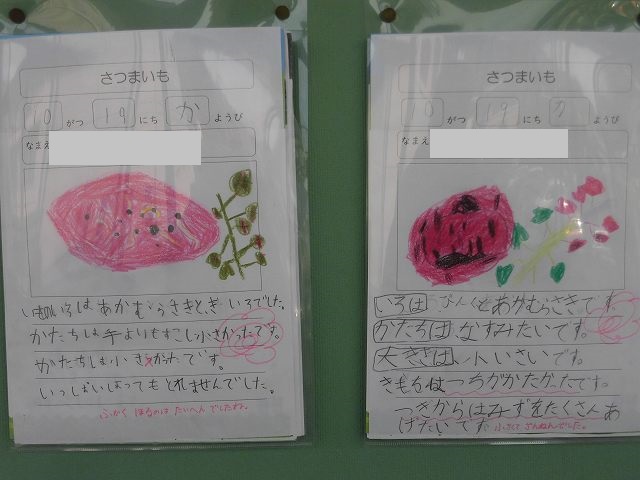 さつまいも
10 がつ 19 にち か ようび
なまえ
いものいろはあかむらさきときいろでした。
かたちは手よりもすこし小さかったです。
かたちは小さかったです。
いっしょうけんめいほってもとれませんでした。
ふかく ほるのは たいへん でしたね。
さつまいも
10 がつ 19 にち か ようび
なまえ
いろは ぴんくとあかむらさきです。
かたちは なすみたいです。
大きさは 小いさいです。
きもちは つちがかたかったです。
つぎからはみずをたくさんあ
げたいです 小さくて ざんねんでした。